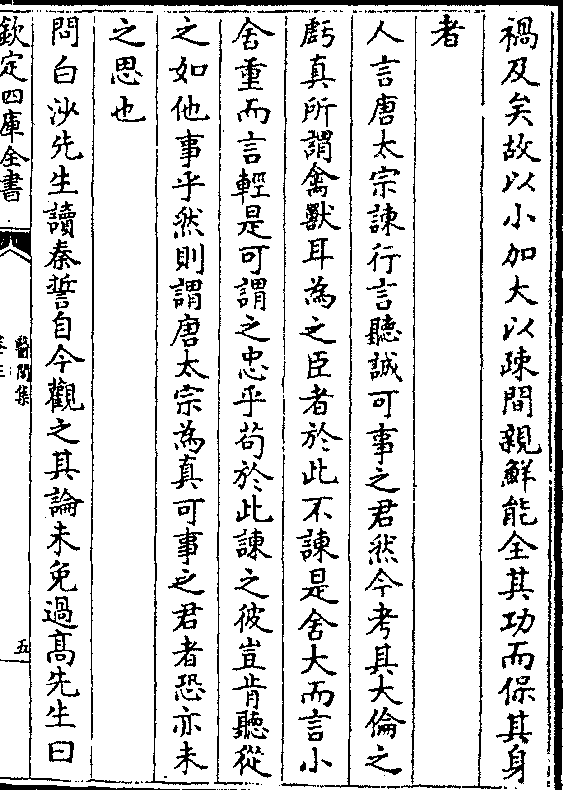 禍及矣故以小加大以疎間親鮮能全其功而保其身
者
人言唐太宗諫行言聽誠可事之君然今考其大倫之
虧真所謂禽獸耳為之臣者於此不諫是舍大而言小
舍重而言輕是可謂之忠乎苟於此諫之彼豈肯聽從
之如他事乎然則謂唐太宗為真可事之君者恐亦未
之思也
問白沙先生讀秦誓自今觀之其論未免過高先生曰
欽定四庫全書
醫閭集
五